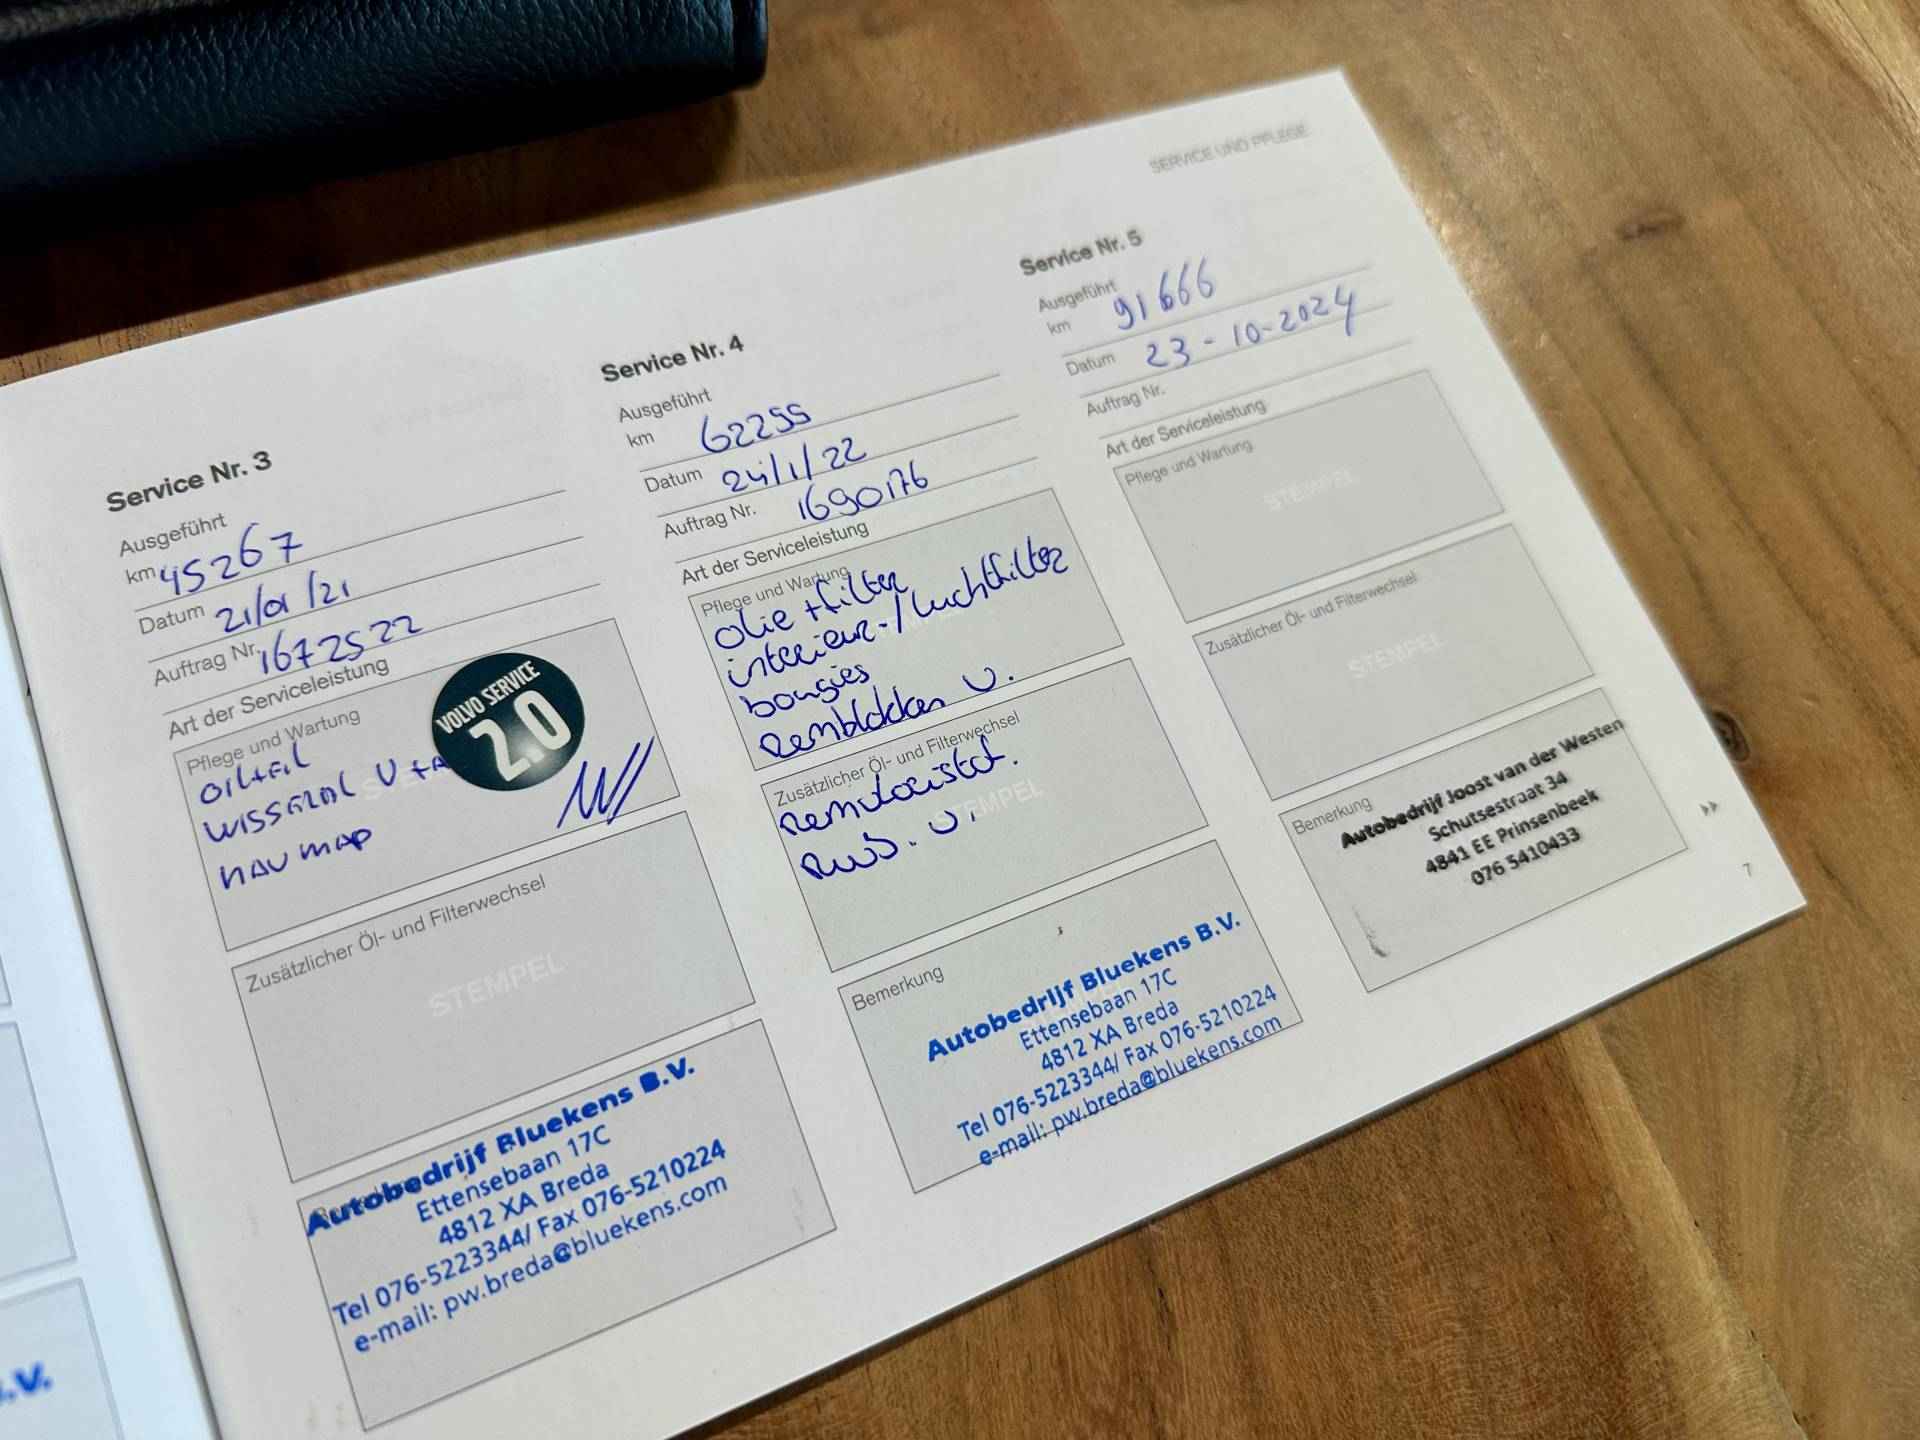 SERVICE UND PFLEGE
Service Nr. 3
Ausgeführt
km 45267
Datum 21/01/21
Auftrag Nr. 1672522
Art der Serviceleistung
Pflege und Wartung
VOLVO SERVICE
2.0
nav map
Zusätzlicher Öl- und Filterwechsel
STEMPEL
Autobedrijf Bluekens B.V.
Ettensebaan 17C
4812 XA Breda
Tel 076-5223344/ Fax 076-5210224
e-mail: pw.breda@bluekens.com
Service Nr. 4
Ausgeführt
km 62255
Datum 24/1/22
Auftrag Nr. 1690176
Art der Serviceleistung
Pflege und Wartung
olie + filter
interieur-/luchtfilter
bougies
remblokken v.
Zusätzlicher Öl- und Filterwechsel
STEMPEL
remvloeistof.
Bemerkung
Autobedrijf Bluekens B.V.
Ettensebaan 17C
4812 XA Breda
Tel 076-5223344/ Fax 076-5210224
e-mail: pw.breda@bluekens.com
Service Nr. 5
Ausgeführt
km 91666
Datum 23-10-2024
Auftrag Nr.
Art der Serviceleistung
Pflege und Wartung
STEMPEL
Zusätzlicher Öl- und Filterwechsel
STEMPEL
Bemerkung
Autobedrijf Joost van der Westen
Schutsestraat 34
4841 EE Prinsenbeek
076 5410433
7
.V.